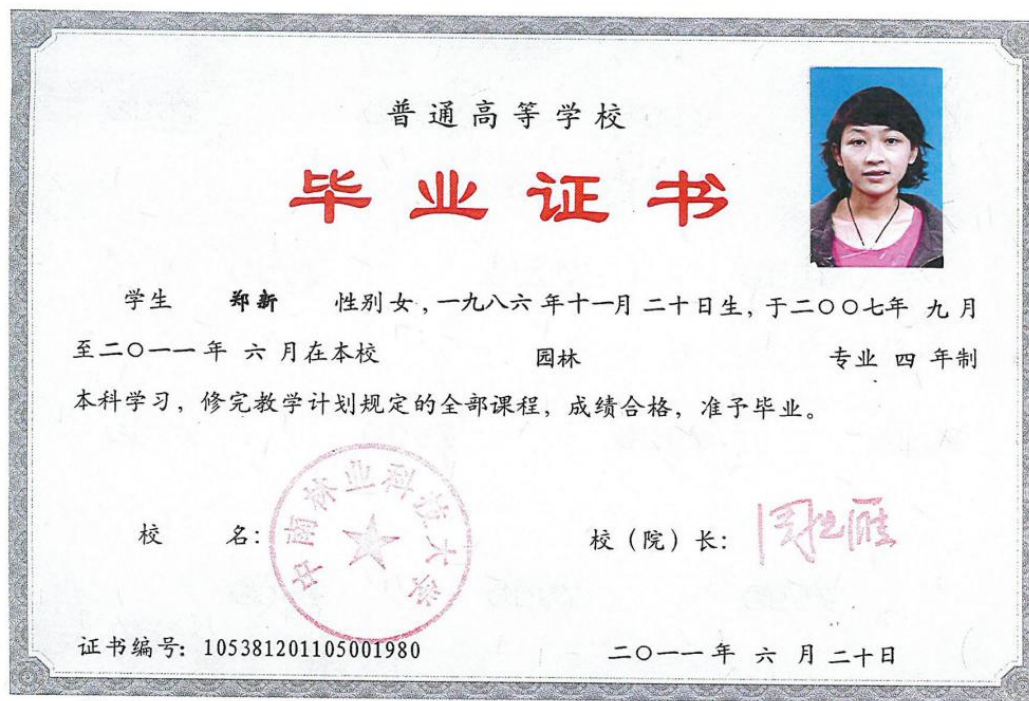 普通高等学校
毕业证书
学生 郑新 性别 女，一九八六 年十一月 二十日生，于二〇〇七年 九 月
至二〇一一 年 六 月在本校 园林 专业 四 年制
本科学习，修完教学计划规定的全部课程，成绩合格，准予毕业。
校 名：
中南林业科技大学
校（院）长：
证书编号：105381201105001980
二〇一一 年 六 月 二十日